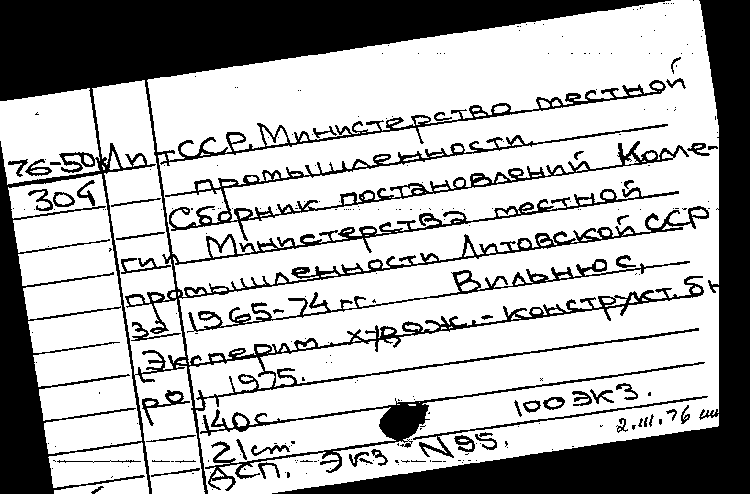 76-50к ЛитССР. Министерство местной
304 промышленности.
Сборник постановлений Колле-
гии Министерства местной
промышленности Литовской ССР
за 1965-74 гг. Вильнюс,
[Эксперим. худож.-конструкт. бю
ро], 1975.
140 с. 100 экз.
21 cm. 2.III.76
ДСП. Экз. N 95.